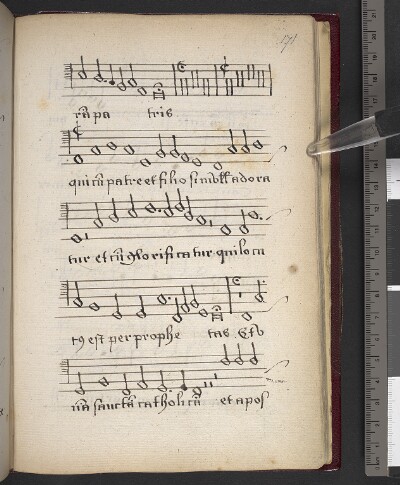 171
rū pa tris
qui cū patre et filio simul adora
tur et cū glorificatur qui locu
tꝰ est per prophe tas Et v
nā sanctā catholicā et apos